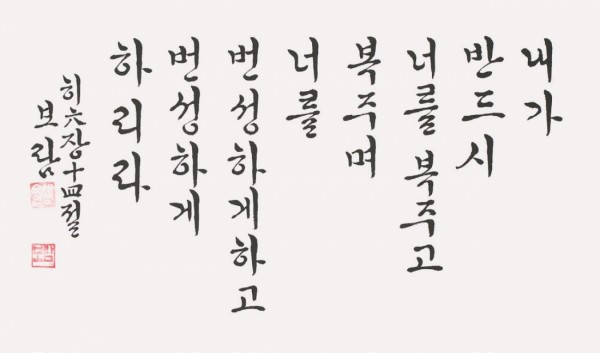 내가
반드시
너를 복주고
복주며
너를
번성하게하고
번성하게
하리라
히六장十四절
보람